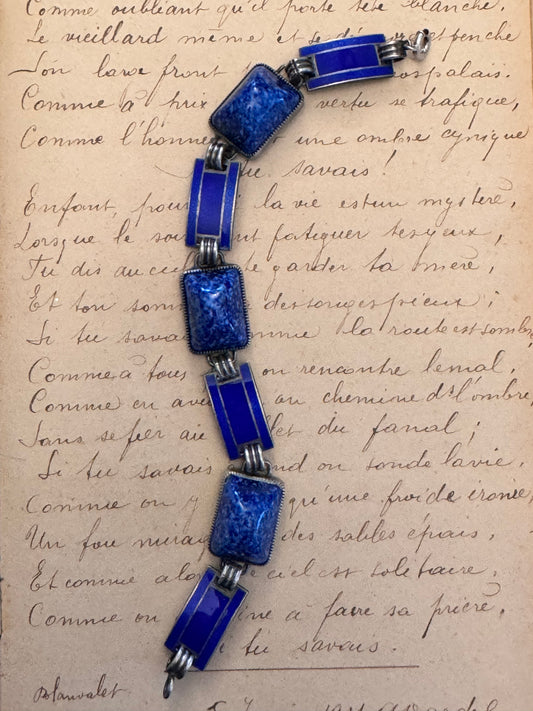 Comme oubliant qu'il porte tête blanche,
Le vieillard même et se penche
Son large front
Comme à prix vertu se trafique,
Comme l'honne une ombre cynique
tu savais !
Enfant, pou la vie est un mystère,
Lorsque le so nt fatiguer tes yeux,
Tu dis au garder ta mère,
Et ton som des songes pieux ;
Si tu savai omme la route est sombre
Comme à tous on rencontre le mal,
Comme en av au chemine ds l'ombre,
Sans se fier au let du fanal ;
Si tu savais nd on sonde la vie,
Comme on qu'une froide ironie,
Un fou mirag des sables épais,
Et comme alo e ciel est solitaire,
Comme on ine à faire sa prière,
i tu savais.
Blanvalet